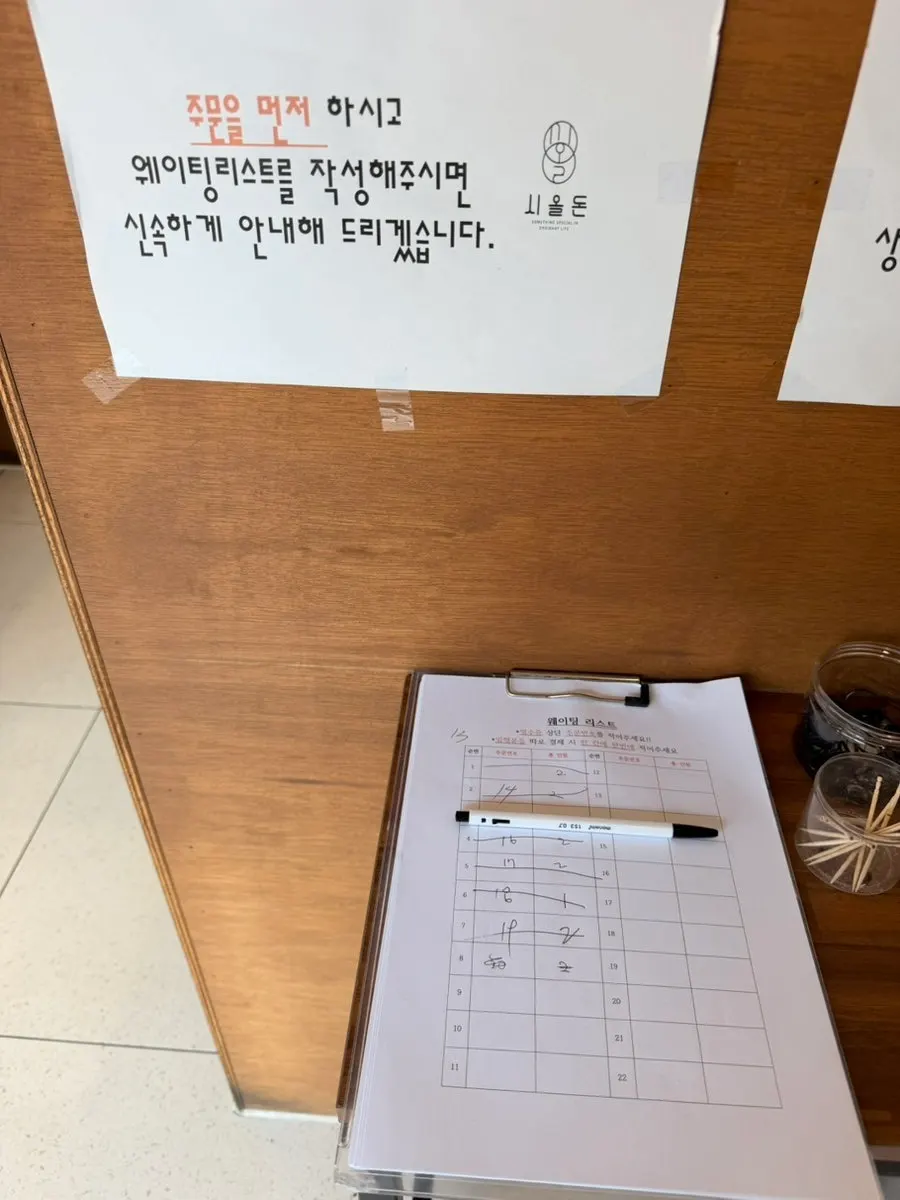 주문을 먼저 하시고
웨이팅리스트를 작성해주시면
신속하게 안내해 드리겠습니다.
시올돈
SOMETHING SPECIAL IN
ORDINARY LIFE
상
웨이팅 리스트
*영수증 상단 주문번호를 적어주세요!!
바로 결제 시 한 칸에 한번에 적어주세요
순번 주문번호 총 인원 순번 주문번호 총 인원
1 2 12
2 14 2 13
monami 153 0.7
4 16 2 15
5 17 2 16
6 18 1 17
7 19 2 18
8 2 19
9 20
10 21
11 22